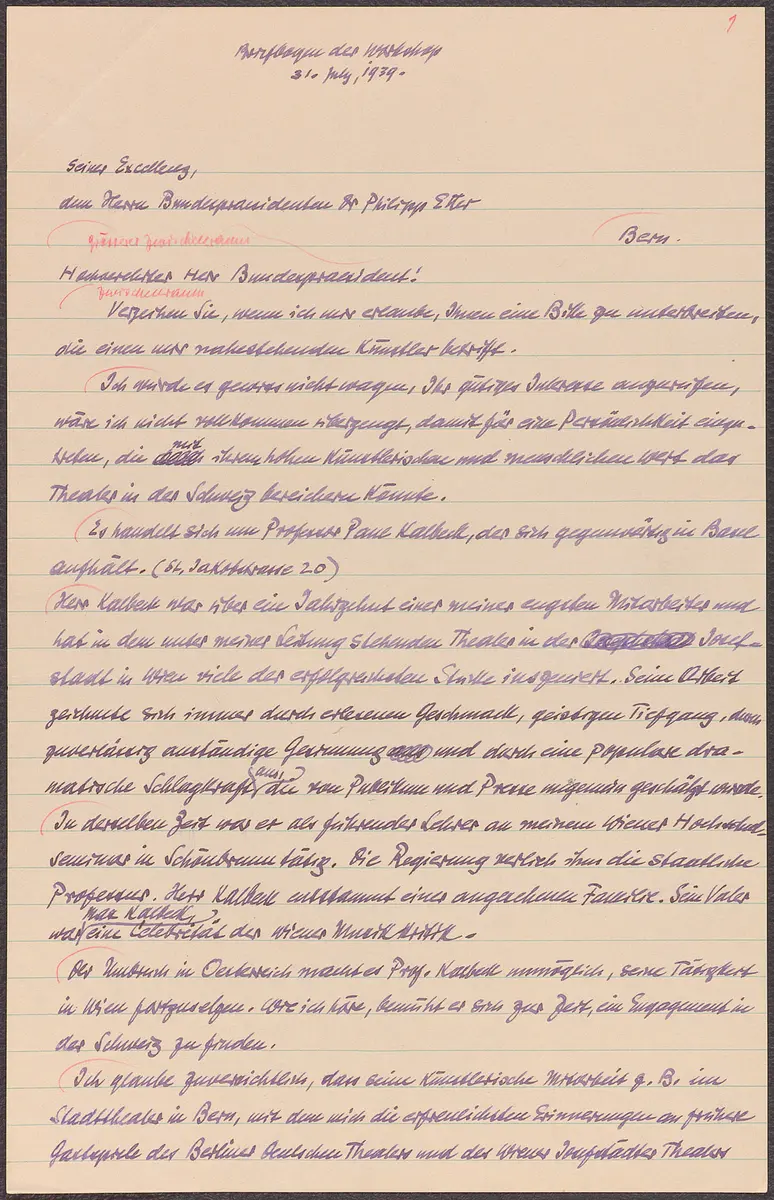 1
Briefbogen der Workshop
31. July, 1939.
Seiner Excellenz,
dem Herrn Bundespraesidenten Dr Philipp Etter
grösserer Zwischenraum
Bern.
Hochverehrter Herr Bundespraesident!
Zwischenraum
Verzeihen Sie, wenn ich mir erlaube, Ihnen eine Bitte zu unterbreiten,
die einen mir nahestehenden Künstler betrifft.
Ich würde es gewiss nicht wagen, Ihr gütiges Interesse anzurufen,
wäre ich nicht vollkommen überzeugt, damit für eine Persönlichkeit einzu-
treten, die mit ihrem hohen künstlerischen und menschlichen Wert das
Theater in der Schweiz bereichern könnte.
Es handelt sich um Professor Paul Kalbeck, der sich gegenwärtig in Basel
aufhält. (St. Jakobstrasse 20)
Herr Kalbeck war über ein Jahrzehnt einer meiner engsten Mitarbeiter und
hat in dem unter meiner Leitung stehenden Theater in der Josef-
stadt in Wien viele der erfolgreichsten Stücke inszeniert. Seine Arbeit
zeichnete sich immer durch erlesenen Geschmack, geistigen Tiefgang, durch
zuverlässig anständige Gesinnung und durch eine populäre dra-
matische Schlagkraft aus, die von Publikum und Presse allgemein geschätzt wurde.
In derselben Zeit war er als führender Lehrer an meinem Wiener Hochschul-
seminar in Schönbrunn tätig. Die Regierung verlieh ihm die staatliche
Professur. Herr Kalbeck entstammt einer angesehenen Familie. Sein Vater
Max Kalbeck,
war eine Celebrität der Wiener Musikkritik.
Der Umbruch in Oesterreich macht es Prof. Kalbeck unmöglich, seine Tätigkeit
in Wien fortzusetzen. Wie ich höre, bemüht er sich zur Zeit, ein Engagement in
der Schweiz zu finden.
Ich glaube zuversichtlich, dass seine künstlerische Mitarbeit z. B. im
Stadttheater in Bern, mit dem mich die erfreulichsten Erinnerungen an frühere
Gastspiele des Berliner Deutschen Theaters und des Wiener Josefstädter Theaters